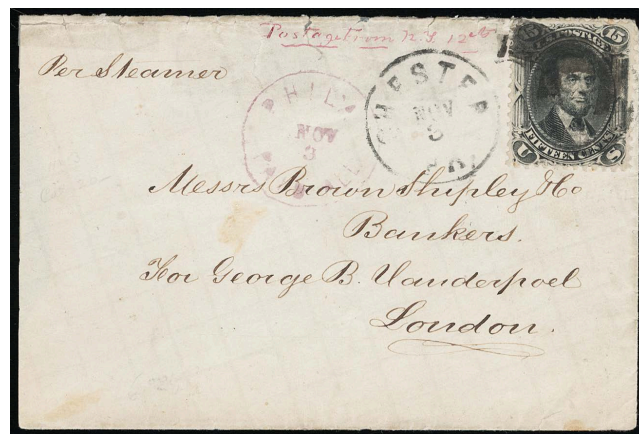 Postage from N.Y. 12cts
Per Steamer
PHILA
NOV
3
CHESTER
NOV
3
PA.
15 U.S. POSTAGE 15
FIFTEEN CENTS
U S
Messrs Brown Shipley & Co
Bankers.
For George B. Vanderpoel
London.